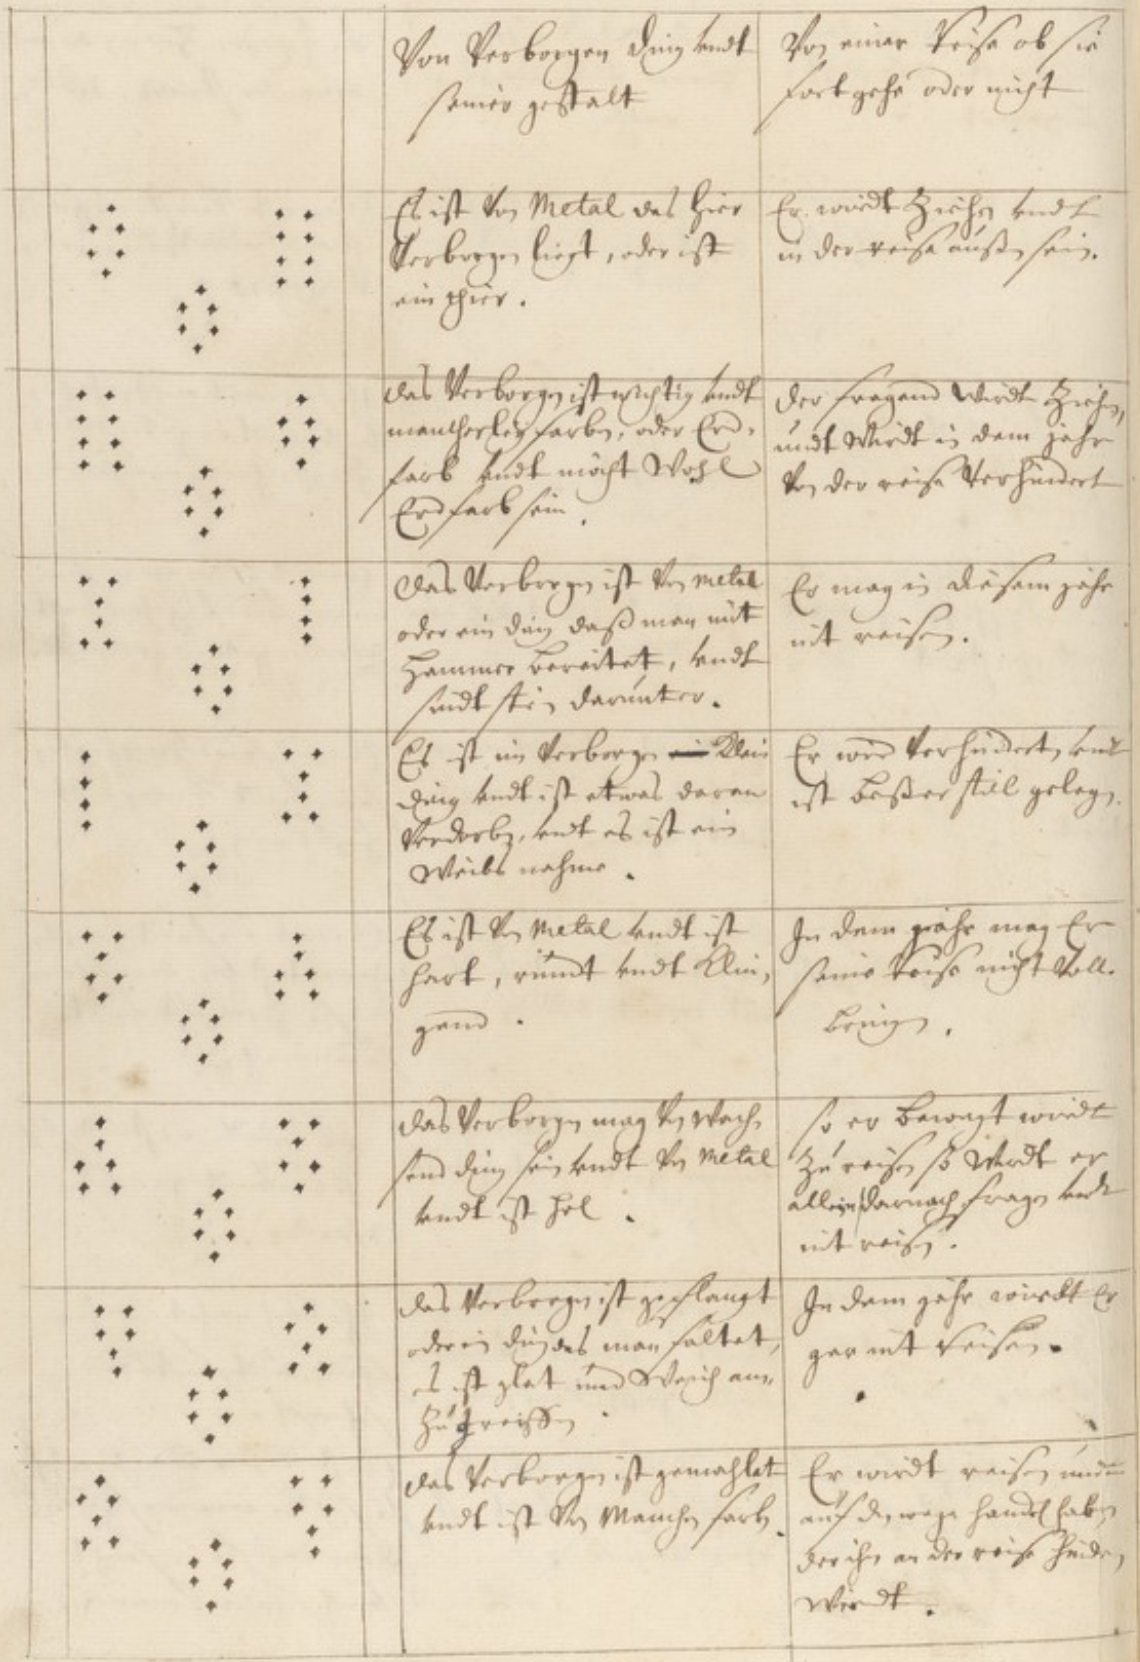 Von Verborgen ding undt
seiner gestalt
Von einer Reise ob sie
fort gehe oder nicht
Es ist von Metal das hier
Verborgen liegt, oder ist
ein thier.
Er wirdt Ziehen undt
in der reise außen sein.
das Verborgen ist wichtig undt
mancherley farben, oder Erd-
farb undt möcht Wohl
Erdfarb sein.
der fragend Wirdt Ziehen,
undt Wirdt in dem jahr
Von der reise Verhindert
das Verborgen ist Von metal
oder ein ding daß man mit
Hammer bereitet, undt
sindt stein darunter.
Er mag in diesem jahr
nit reisen.
Es ist im Verborgen klein
ding undt ist etwas daran
Verdorben, undt es ist ein
Weibs nahme.
Er wird Verhindert, undt
ist beßer still gelegen.
Es ist Von Metal undt ist
hart, rundt undt Klin,
gend.
In dem jahr mag Er
seine Reise nicht Voll-
bringen.
das Verborgen mag Von Wach,
send ding sein undt Von Metal
undt ist hol.
so er bewegt wirdt
Zu reisen so Wirdt er
allein darnach fragen undt
nit reisen.
das Verborgen ist
oder ein ding das man faltet,
es ist glat und Weich an-
Zugreiffen.
In dem jahr wirdt Er
gar nit Reisen.
das Verborgen ist gemahlet
undt ist Von Manchen farben.
Er wirdt reisen undt
auf dem wege handel haben
der ihn an der reise hindern
Wirdt.